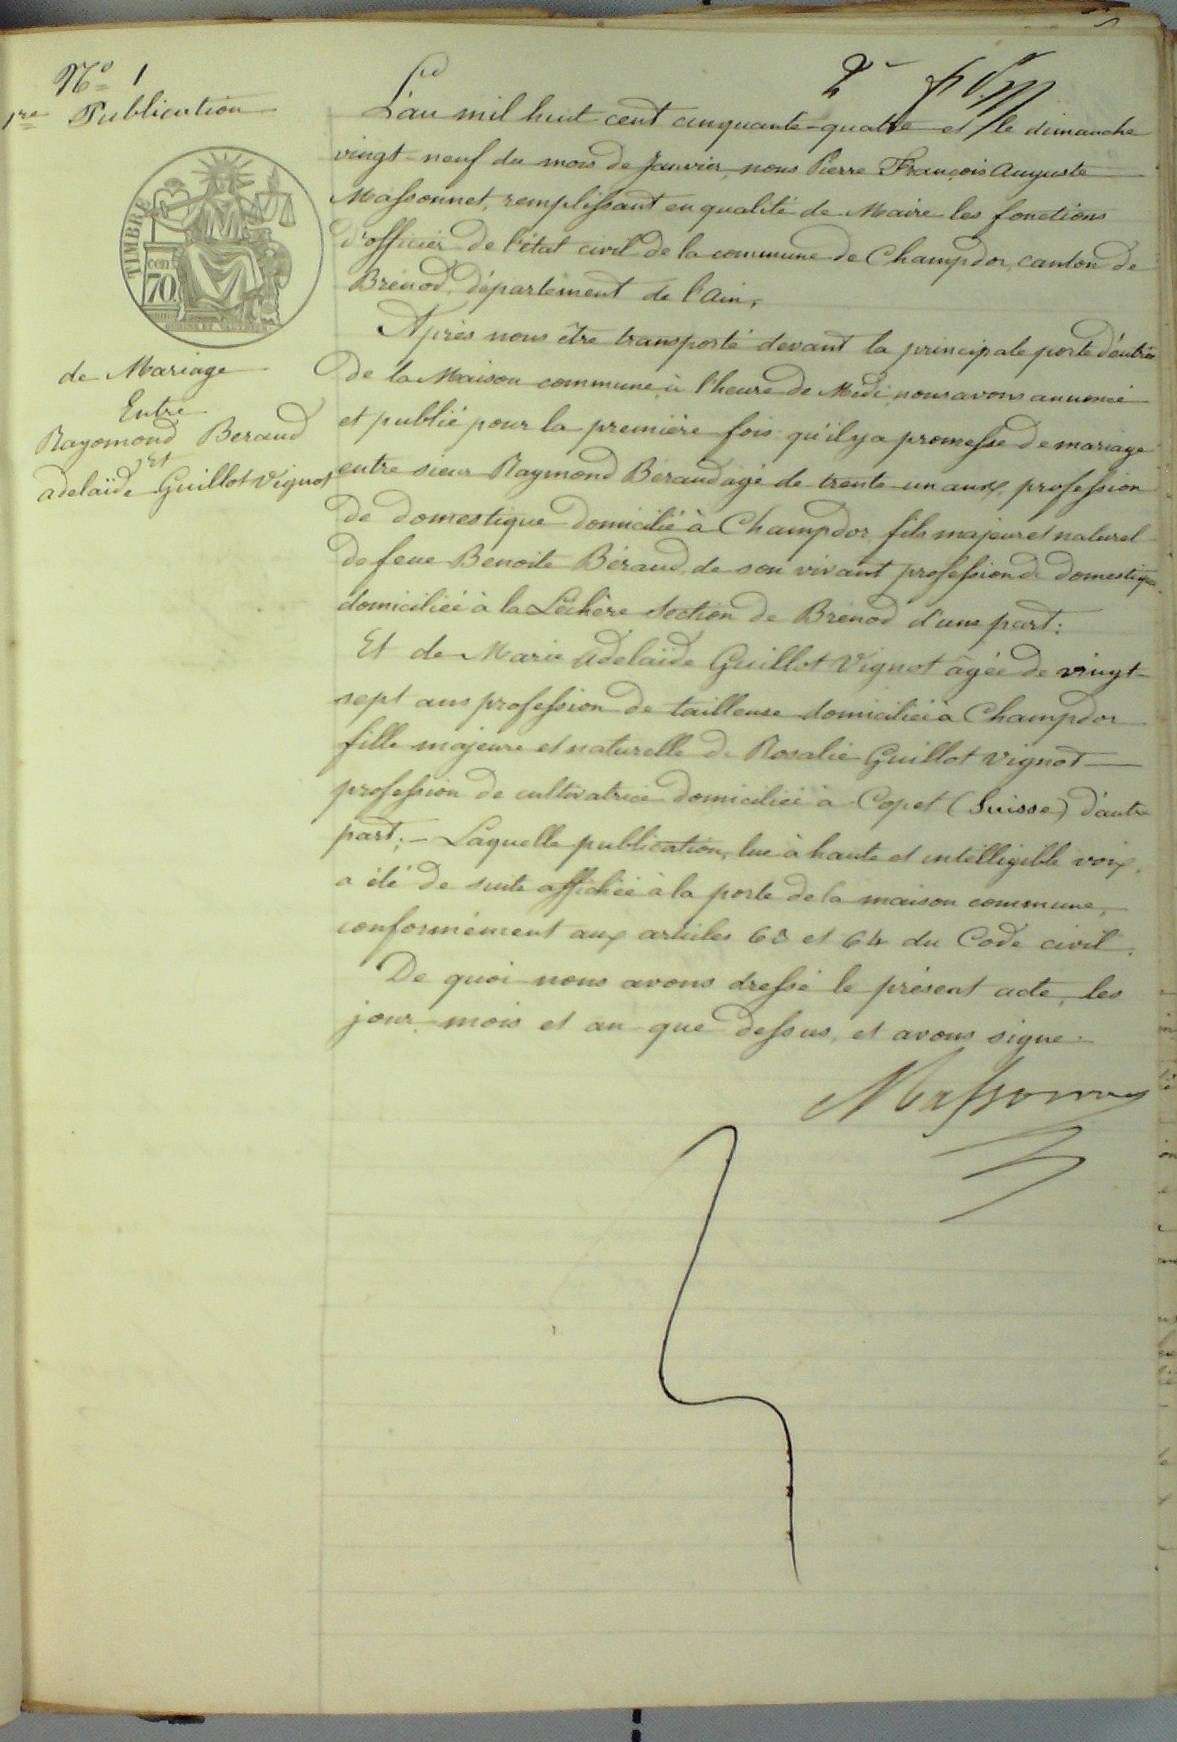 N° 1
1re Publication
TIMBRE
cen
70
de Mariage
Entre
Rayomond Beraud
et
adelaïde Guillot Vignot
2e
L'an mil huit cent cinquante-quatre et le dimanche
vingt-neuf du mois de Janvier, nous Pierre François Auguste
Massonnet, remplissant en qualité de Maire les fonctions
d'officier de l'état civil de la commune de Champdor, canton de
Brénod, département de l'Ain,
Après nous être transporté devant la principale porte d'entrée
de la Maison commune, à l'heure de Midi, nous avons annoncé
et publié pour la première fois qu'il y a promesse de mariage
entre sieur Raymond Béraud agé de trente un ans, profession
de domestique domicilié à Champdor, fils majeur et naturel
de feue Benoite Béraud, de son vivant profession de domestique
domiciliée à la Léchère section de Brénod d'une part;
Et de Marie Adelaïde Guillot Vignot âgée de vingt-
sept ans profession de tailleuse domiciliée à Champdor
fille majeure et naturelle de Rosalie Guillot Vignot
profession de cultivatrice domiciliée à Copet (Suisse) d'autre
part; - Laquelle publication, lue à haute et intelligible voix,
a été de suite affichée à la porte de la maison commune,
conformément aux articles 63 et 64 du Code civil.
De quoi nous avons dressé le présent acte, les
jour, mois et an que dessus, et avons signé.
Massonnet